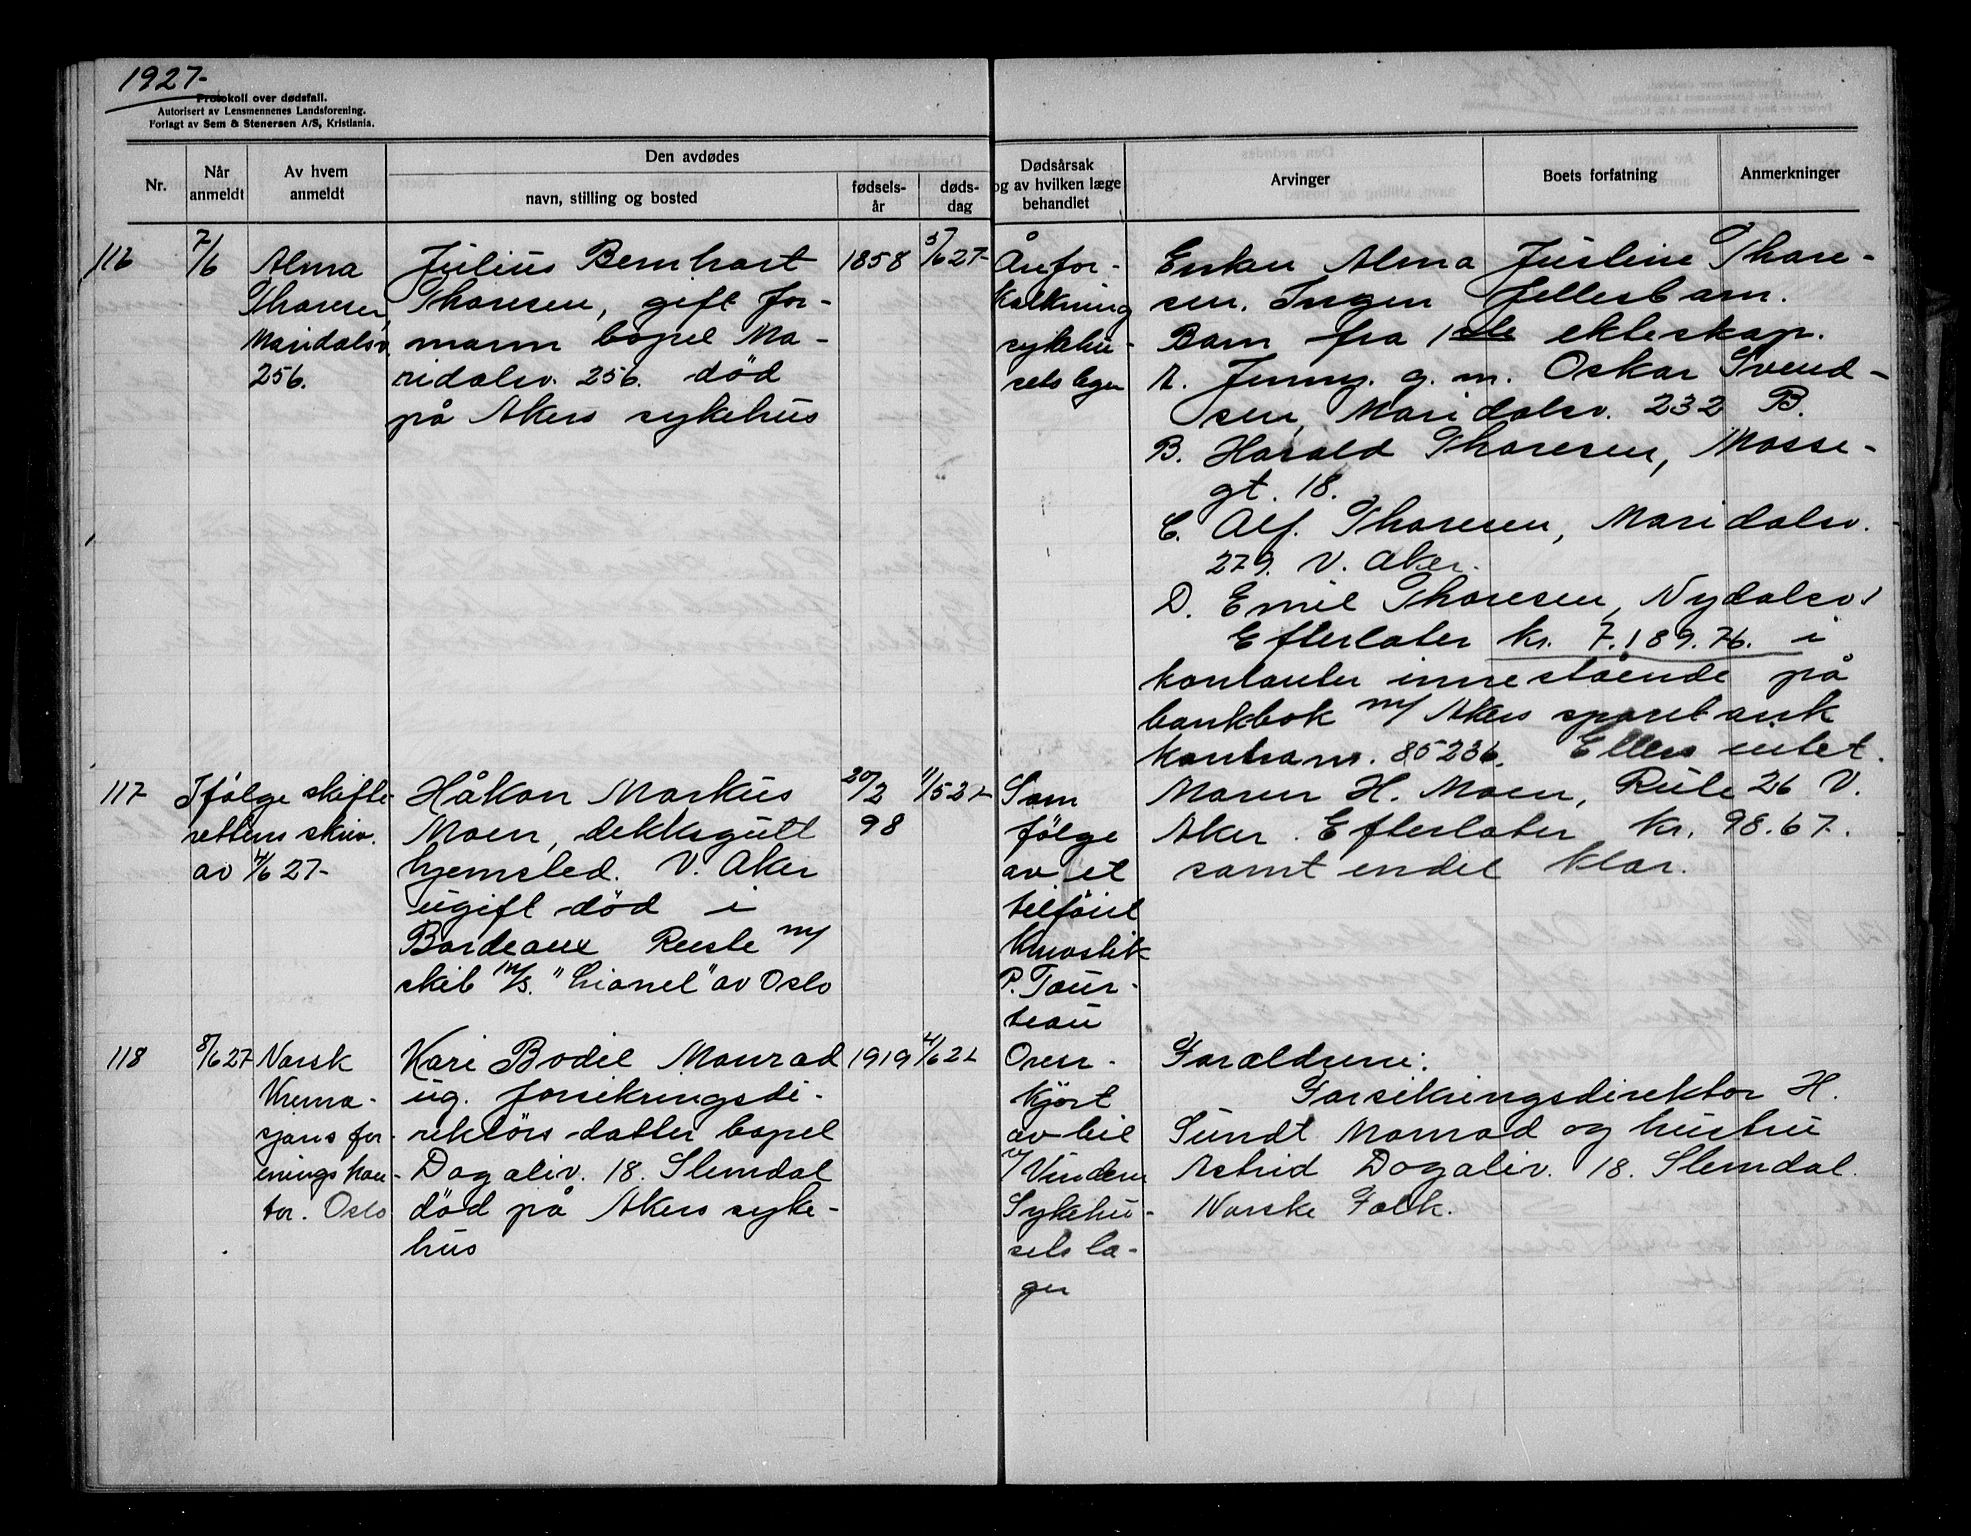 1927-
Protokoll over dødsfall.
Autorisert av Lensmennenes Landsforening.
Forlagt av Sem & Stenersen A/S, Kristiania.
Nr.
Når anmeldt
Av hvem anmeldt
Den avdødes
navn, stilling og bosted
fødsels-år
døds-dag
Dødsårsak og av hvilken læge behandlet
Arvinger
Boets forfatning
Anmerkninger
116
7/6
Alma
Thoresen,
Maridalsv
256.
Julius Bernhart
Thoresen, gift for-
mann bopel Ma-
ridalsv. 256. død
på Akers sykehus
1858
5/6 27-
Årefor-
kalkning
sykehu-
sets leger
Enken Alma Justine Thore-
sen. Ingen fellesbarn.
Barn fra 1ste ekteskap.
A. Jenny. g. m. Oskar Svend-
sen, Maridalsv. 232 B.
B. Harald Thoresen, Mosse-
gt. 18.
C. Alf. Thoresen, Maridalsv.
279. V. Aker.
D. Emil Thoresen, Nydalsv.
Efterlater kr. 7.189.76. i
kontanter innestående på
bankbok m/ Akers sparebank
kontranr. 85236. Ellers intet.
117
Ifølge skifte-
rettens skriv.
av 4/6 27-
Håkon Markus
Moen, dekksgutt
hjemsted. V. Aker
ugift død i
Bordeaux Reeste m/
skib M/S. "Lionel" av Oslo
20/2
98
11/5 27-
Som
følge
av et
tilføiet
knivstik
P. Tour-
teau
Maren H. Moen, Rute 26 V.
Aker. Efterlater kr. 98.67.
samt endel klær.
118
8/6 27
Norsk
Krema-
sjons for-
enings kon-
tor. Oslo
Kari Bodil Monrad
ug. forsikringsdi-
rektørs datter bopel
Dagaliv. 18. Slemdal
død på Akers syke-
hus
1919
4/6 27
Over-
kjørt
av bil
v/ Vindern
Sykehu-
sets læ-
ger
Foreldrene:
Forsikringsdirektør H.
Sundt Monrad og hustru
Astrid Dagaliv. 18. Slemdal.
Norske Folk.